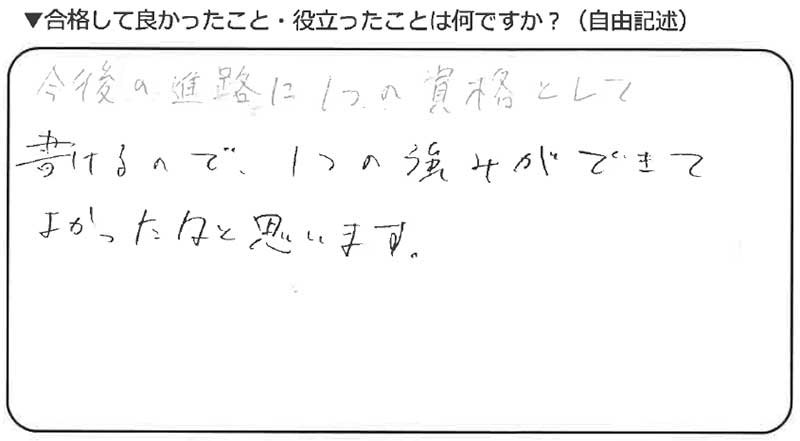 ▼合格して良かったこと・役立ったことは何ですか？（自由記述）
今後の進路に1つの資格として
書けるので、1つの強みができて
よかったなと思います。